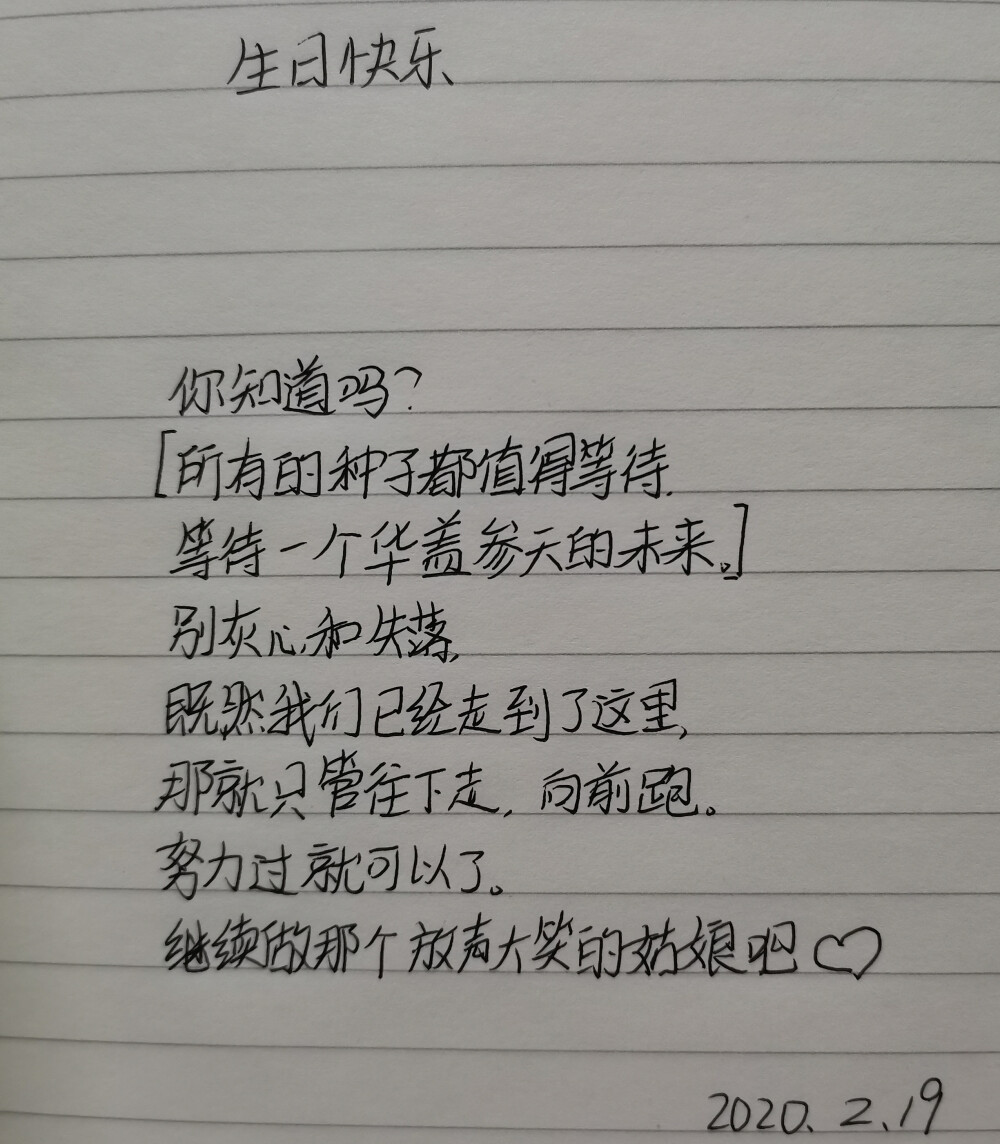 生日快乐
你知道吗?
[所有的种子都值得等待.
等待一个华盖参天的未来。]
别灰心和失落,
既然我们已经走到了这里,
那就只管往下走,向前跑。
努力过就可以了。
继续做那个放声大笑的姑娘吧♡
2020.2.19